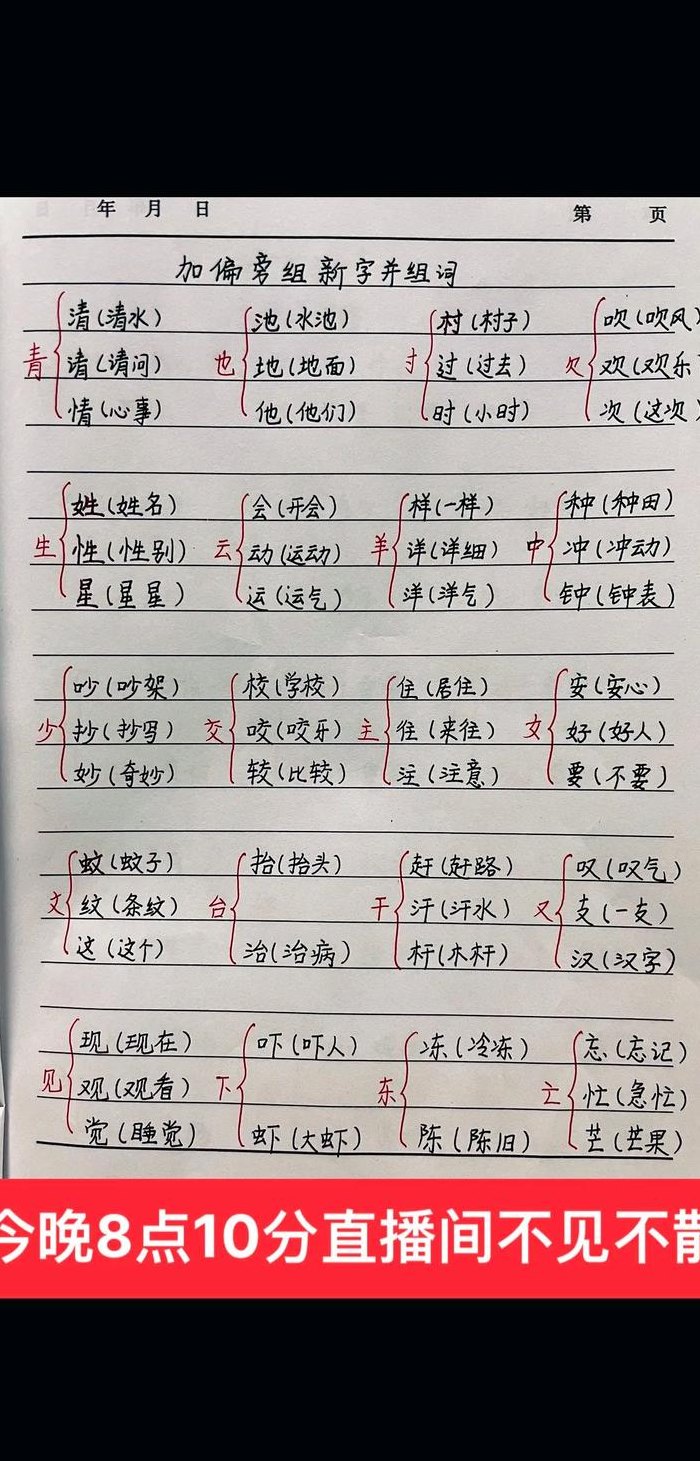 年 月 日
第 页
加偏旁组新字并组词
清(清水) 池(水池) 村(村子) 吹(吹风)
青 请(请问) 也 地(地面) 寸 过(过去) 欠 欢(欢乐
情(心事) 他(他们) 时(小时) 次(这次)
姓(姓名) 会(开会) 样(一样) 种(种田)
生 性(性别) 云 动(运动) 羊 详(详细) 中 冲(冲动)
星(星星) 运(运气) 洋(洋气) 钟(钟表)
吵(吵架) 校(学校) 住(居住) 安(安心)
少 抄(抄写) 交 咬(咬牙) 主 往(来往) 女 好(好人)
妙(奇妙) 较(比较) 注(注意) 要(不要)
蚊(蚊子) 抬(抬头) 赶(赶路) 叹(叹气)
文 纹(条纹) 台 干 汗(汗水) 又 支(一支)
这(这个) 治(治病) 杆(木杆) 汉(汉字)
现(现在) 吓(吓人) 冻(冷冻) 忘(忘记)
见 观(观看) 下 东 亡 忙(急忙)
觉(睡觉) 虾(大虾) 陈(陈旧) 芒(芒果)
今晚8点10分直播间不见不散